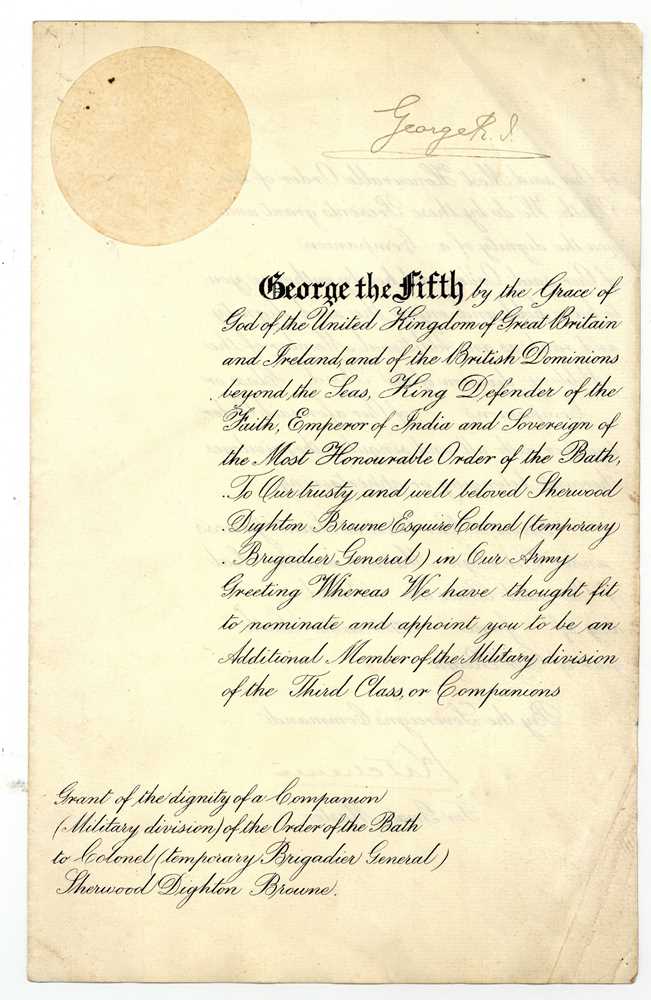 George R. I.
George the Fifth by the Grace of
God of the United Kingdom of Great Britain
and Ireland, and of the British Dominions
beyond the Seas, King Defender of the
Faith, Emperor of India and Sovereign of
the Most Honourable Order of the Bath,
To Our trusty and well beloved Sherwood
Dighton Browne Esquire Colonel (temporary
Brigadier General) in Our Army
Greeting Whereas We have thought fit
to nominate and appoint you to be an
Additional Member of the Military division
of the Third Class, or Companions
Grant of the dignity of a Companion
(Military division) of the Order of the Bath
to Colonel (temporary Brigadier General)
Sherwood Dighton Browne.